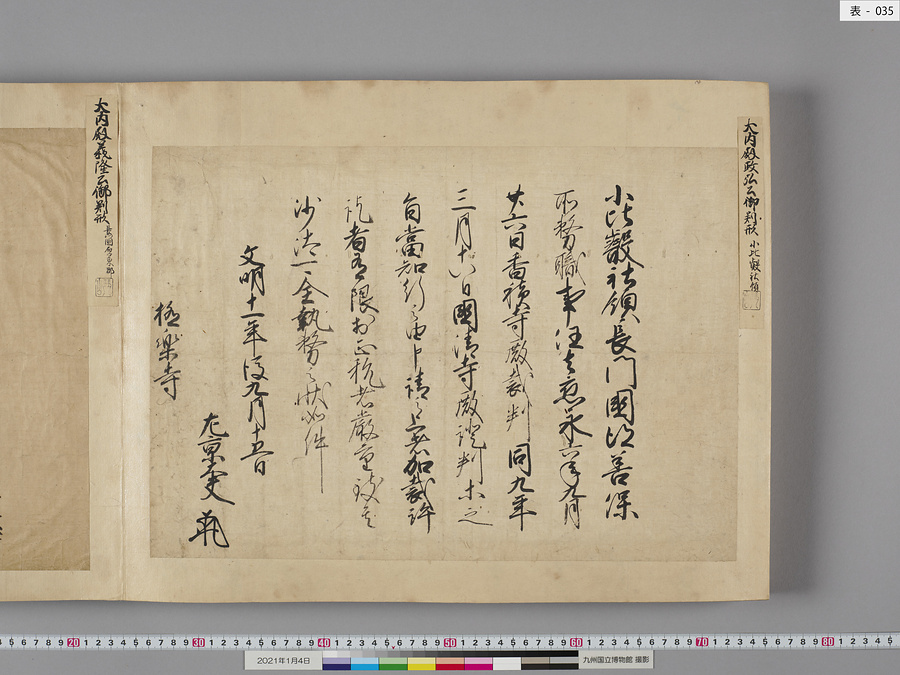 表 - 035
大内殿政弘公御判形 小比叡社領
小比叡社領長門國得善保
所務職事任去應永六年九月
廿六日香積寺殿裁判同九年
三月十八日國清寺殿證判等之
旨當知行之由申請之上者加裁許
訖者有限於正税者嚴重致其
沙汰一全執務之状如件
文明十一年後九月十五日
左京大夫
極楽寺
大内殿義隆公御判形
2021年1月4日
九州国立博物館 撮影